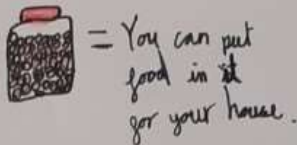 = You can put
food in it
for your house.